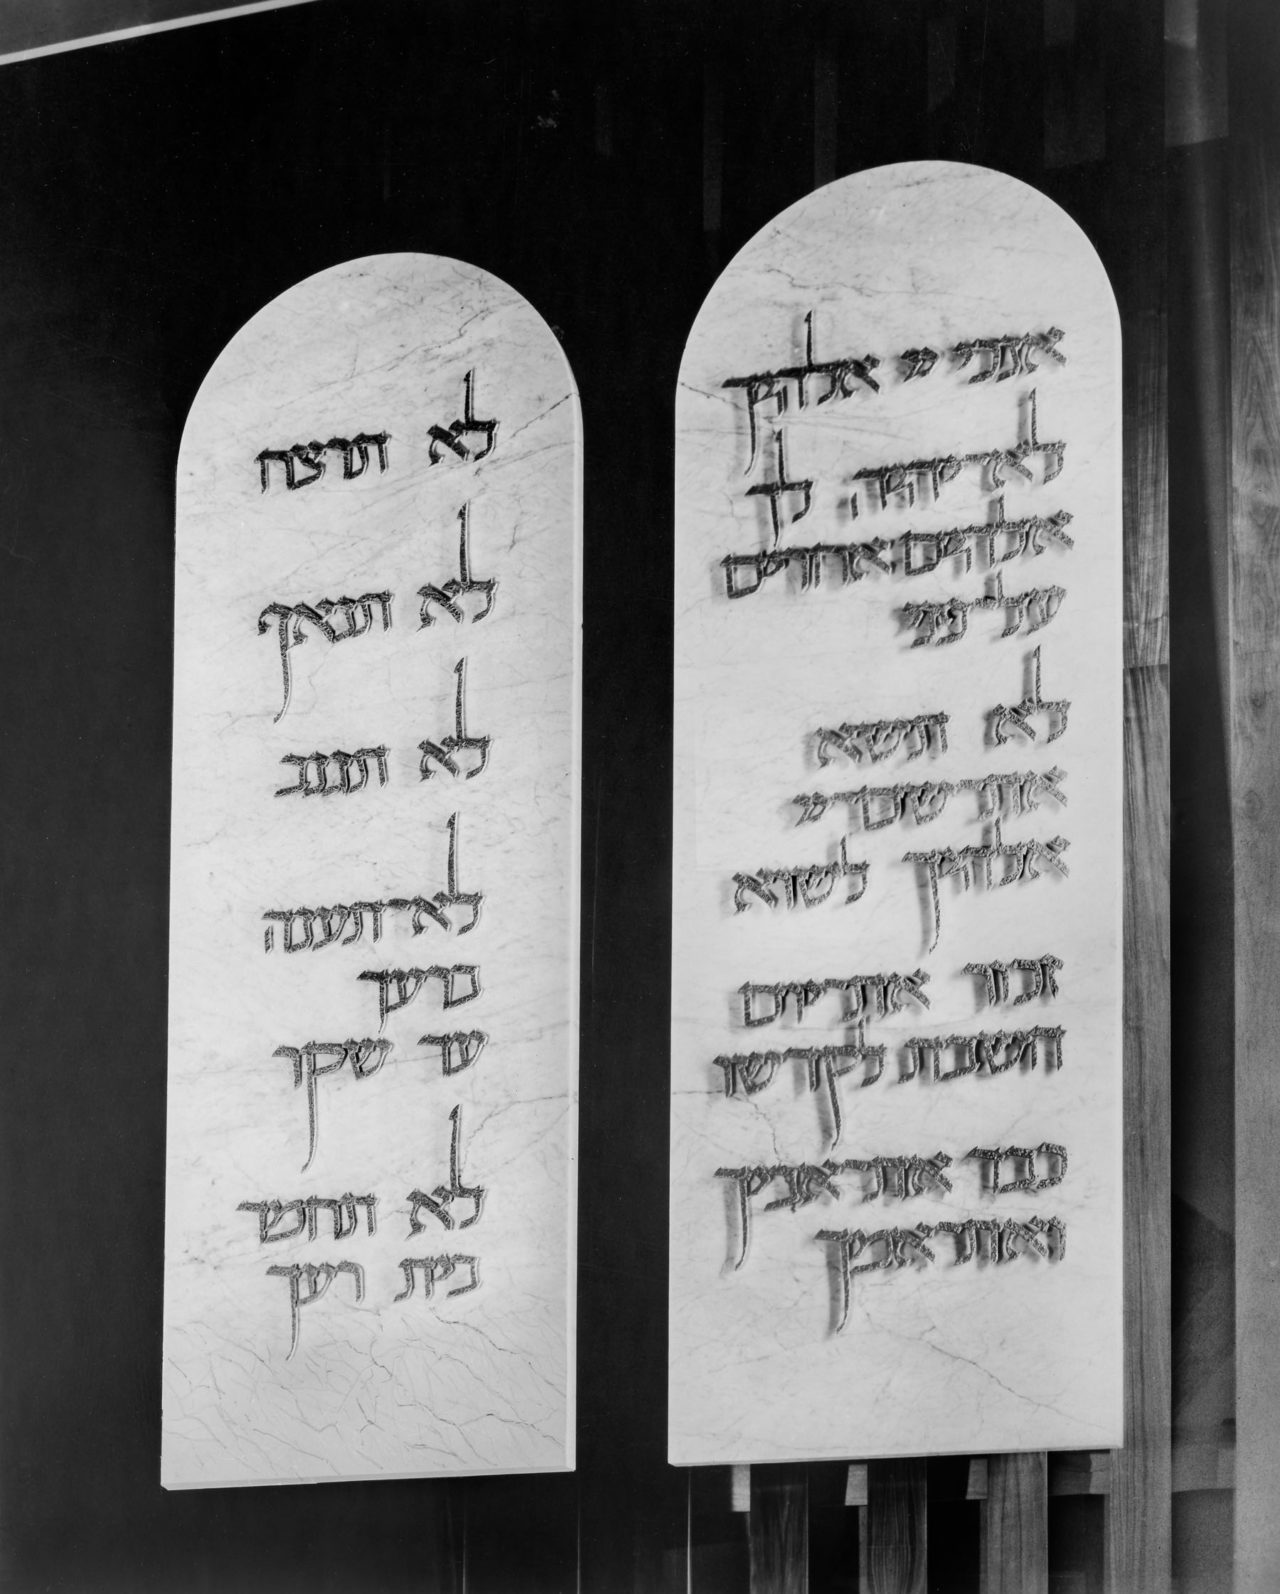 אנכי יי אלהיך
לא־יהיה לך
אלהים אחרים
על־פני
לא תשא
את־שם־יי
אלהיך לשוא
זכור את־יום
השבת לקדשו
כבד את־אביך
ואת־אמך
לא תרצח
לא תנאף
לא תגנב
לא־תענה
ברעך
עד שקר
לא תחמד
בית רעך